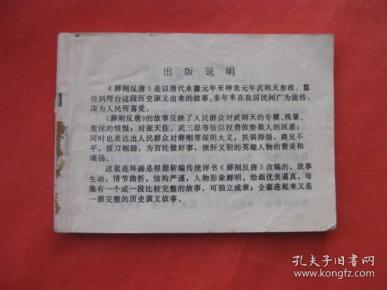 出版说明
《薛刚反唐》是以唐代永徽元年至神龙元年武则天参政、篡
位到垮台这段历史演义出来的故事。多年来在我国民间广为流传，
深为人民所喜爱。
《薛刚反唐》的故事反映了人民群众对武则天的专横、残暴、
荒淫的愤恨；对张天佐、武三思等佞臣权贵依势欺人的厌恶；
同时也表达出人民群众对薛刚等深明大义，扶弱抑强，路见不
平，拔刀相助，为百姓做好事，侠肝义胆的英雄人物的赞美和
颂扬。
这套连环画是根据新编传统评书《薛刚反唐》改编的。故事
生动，情节曲折，结构严谨，人物形象鲜明，绘画优美逼真。每
集有一个或一段比较完整的故事，可独立成章；全套连起来又是
一部完整的历史演义故事。
孔夫子旧书网